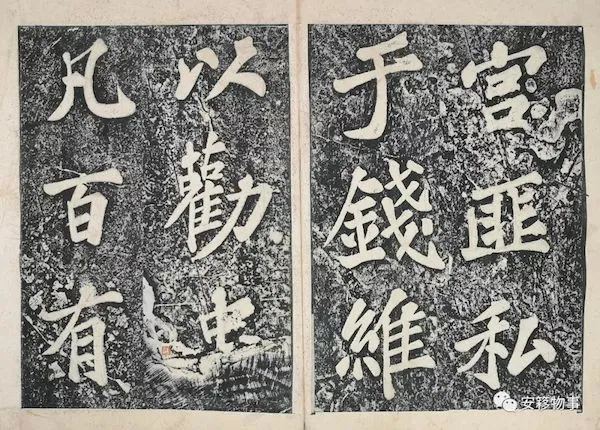 宮匪私
于錢維
以勸忠
凡百有
安簃物事